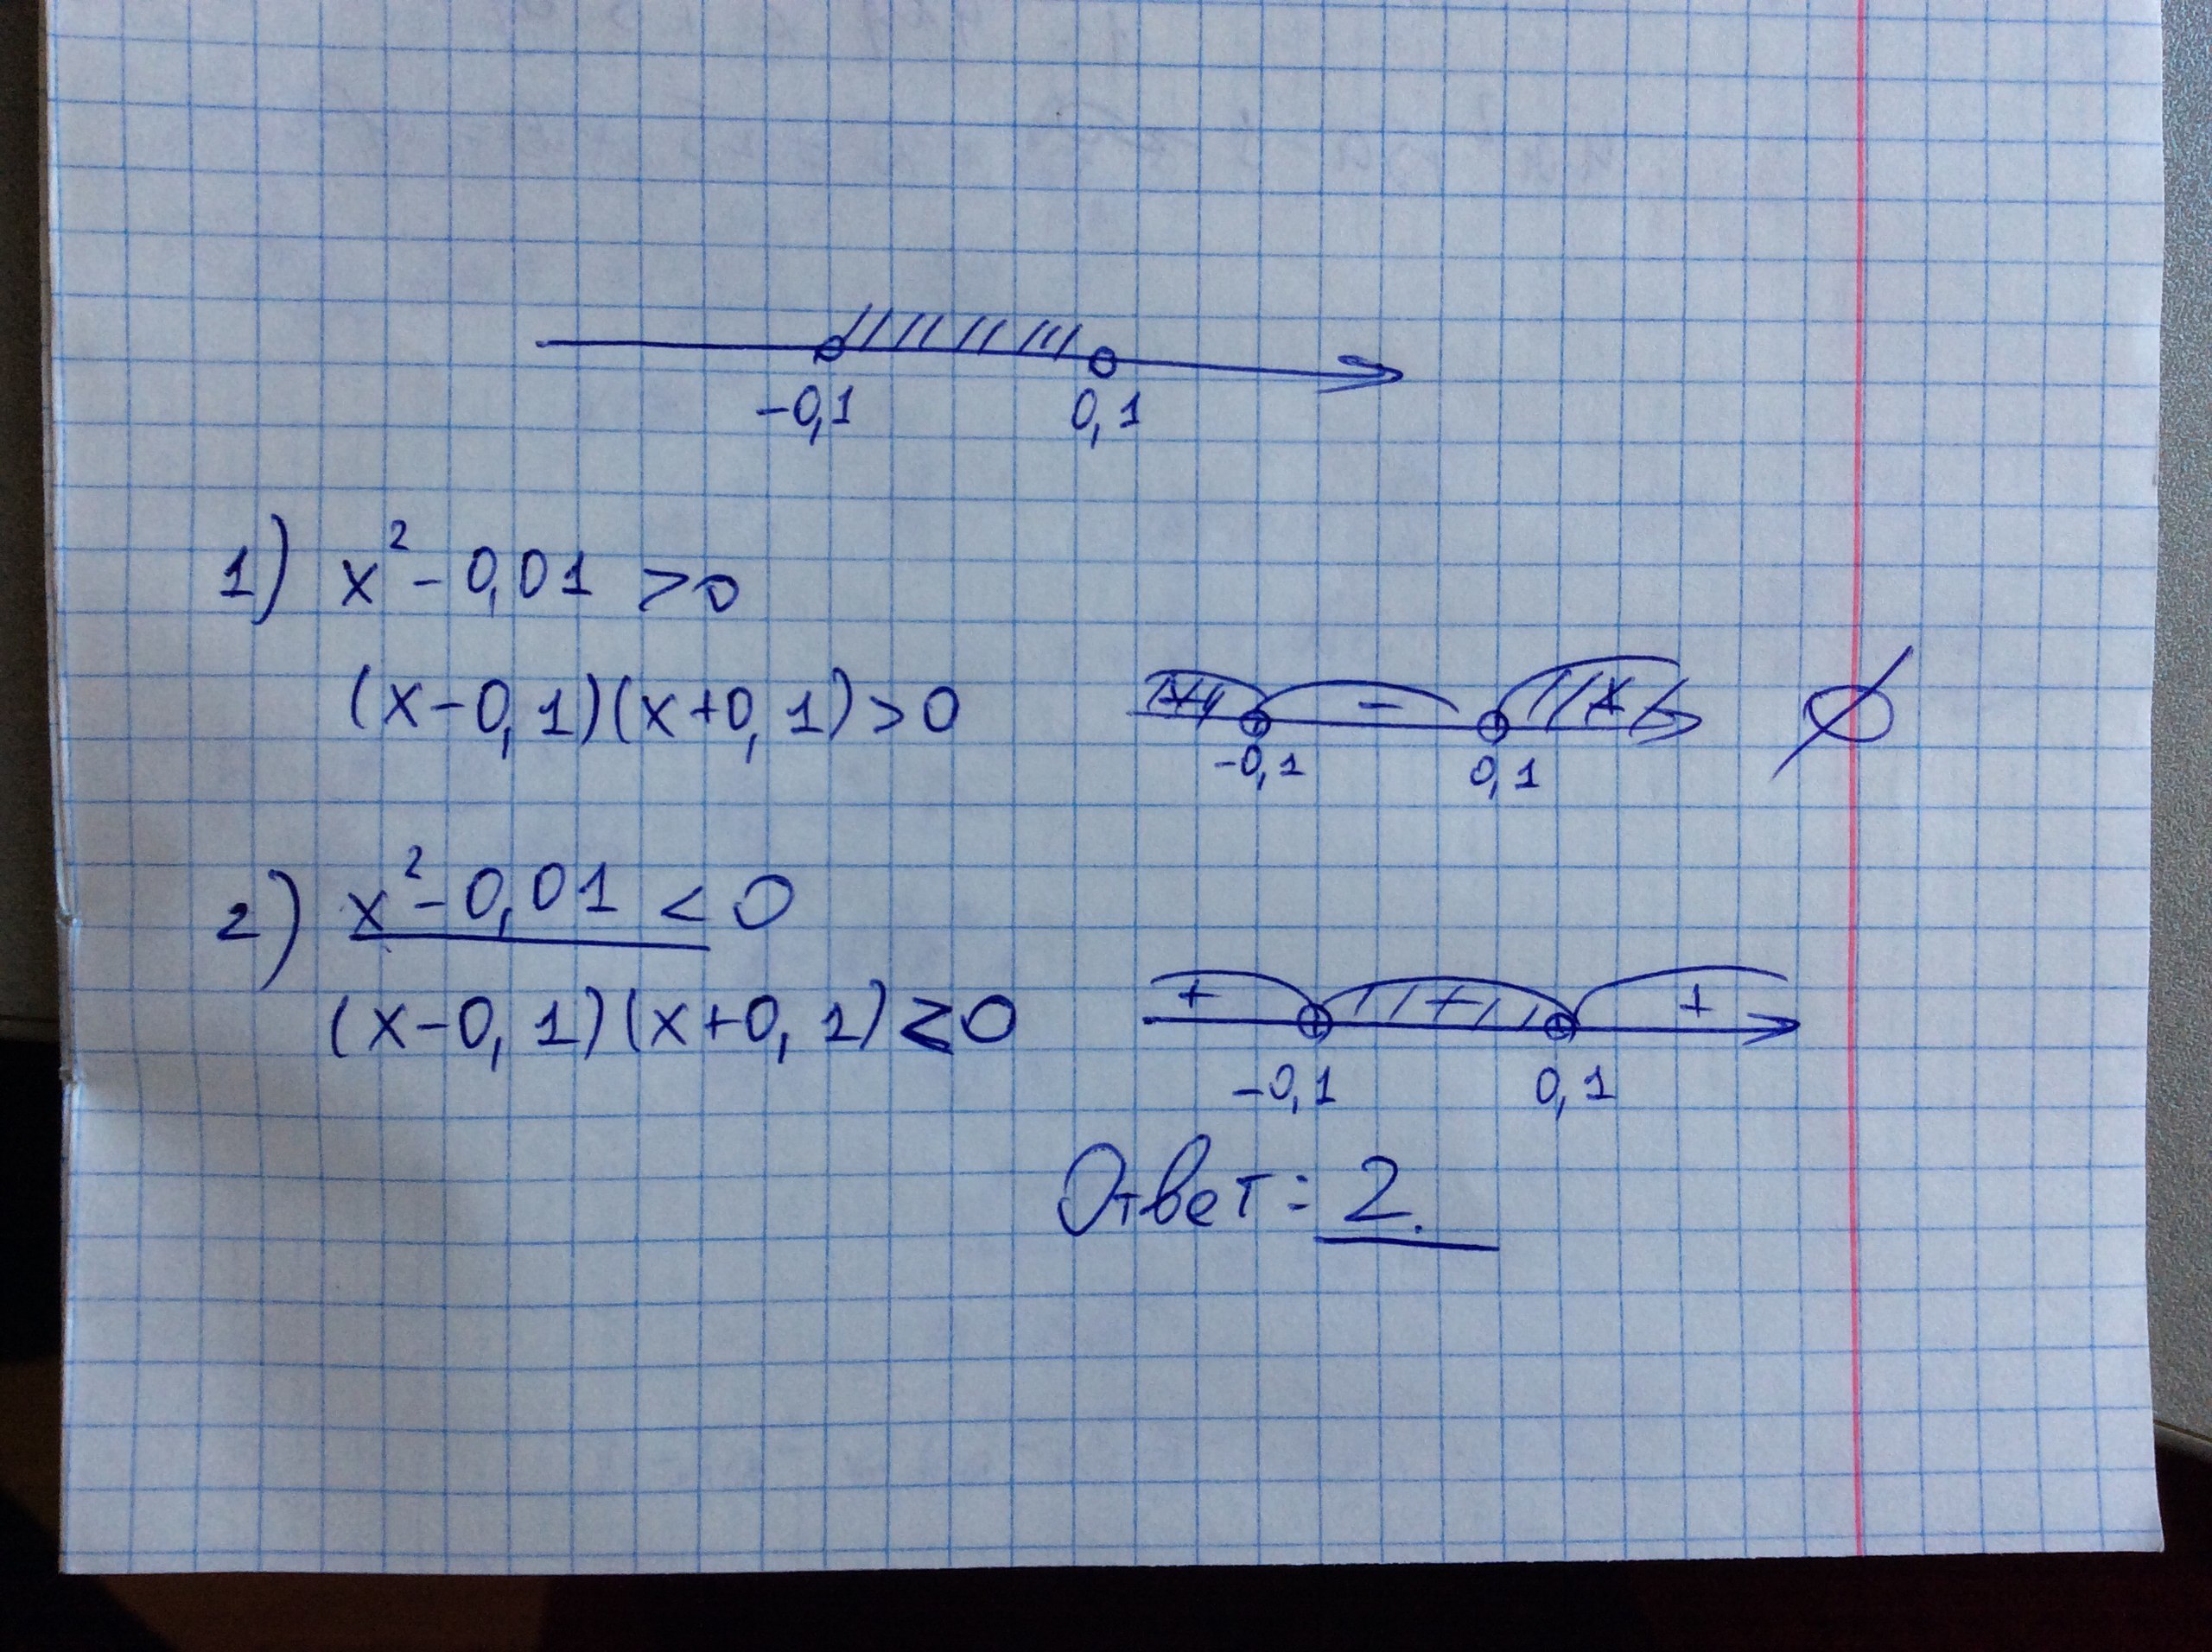 -0,1 0,1
1) x² - 0,01 > 0
(x-0,1)(x+0,1)>0 - + ∅
-0,1 0,1
2) x² - 0,01 < 0
(x-0,1)(x+0,1) 0 + + +
-0,1 0,1
Ответ: 2.